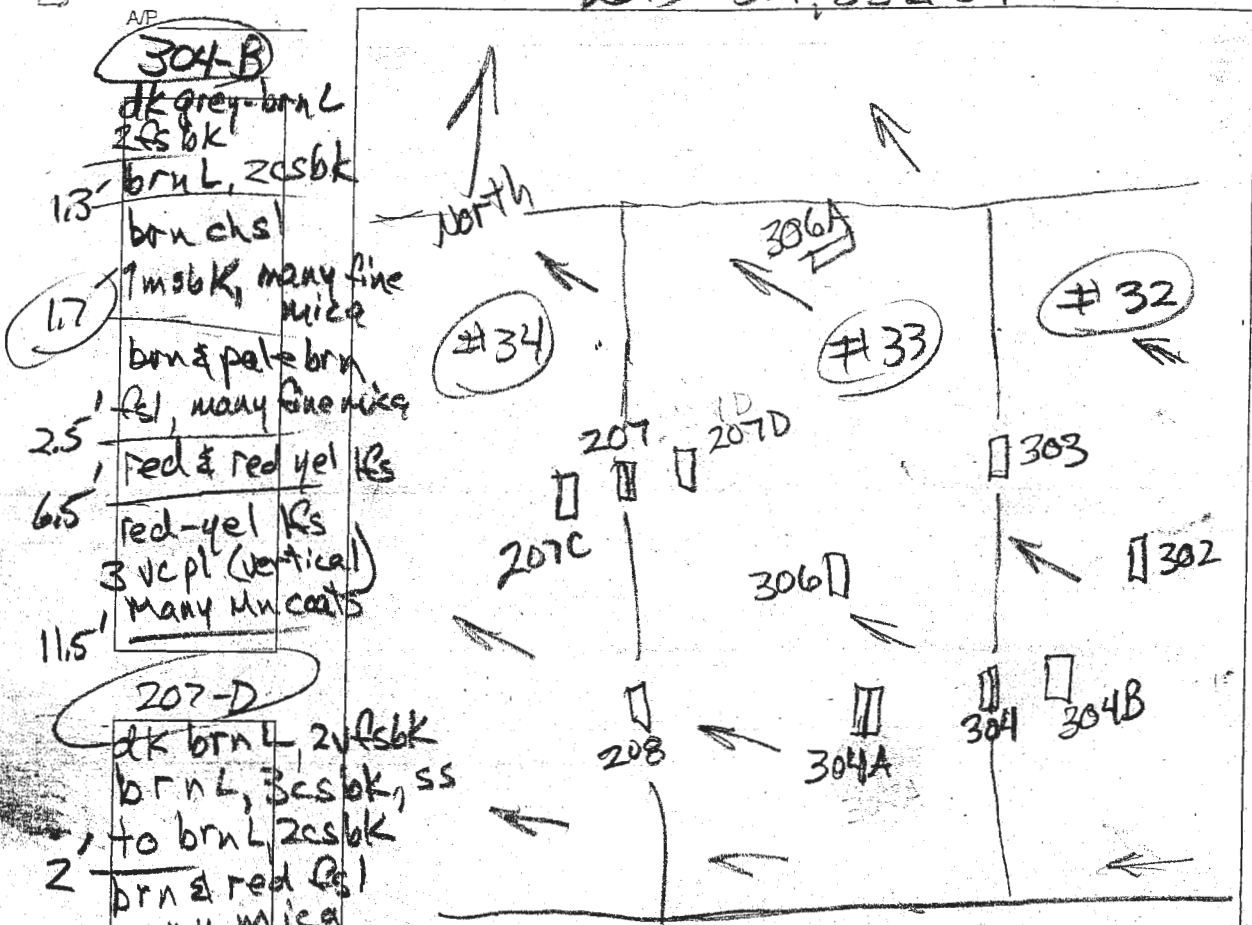 A/P
304-B
dk grey-brn L
2fsbk
brn L, 2csbk
1.3'
brn chsl
1msbk, many fine
mica
1.7'
brn & pale brn
fsl, many fine mica
2.5'
red & red yel lfs
6.5'
red-yel lfs
3 vcpl (vertical)
many Mn coats
11.5'
207-D
dk brn L, 2vfsbk
brn L, 3csbk, ss
to brn L, 2csbk
2'
brn & red fsl
mica
North
306A
#34
#33
#32
207
207D
303
207C
306
302
208
304A
304
304B